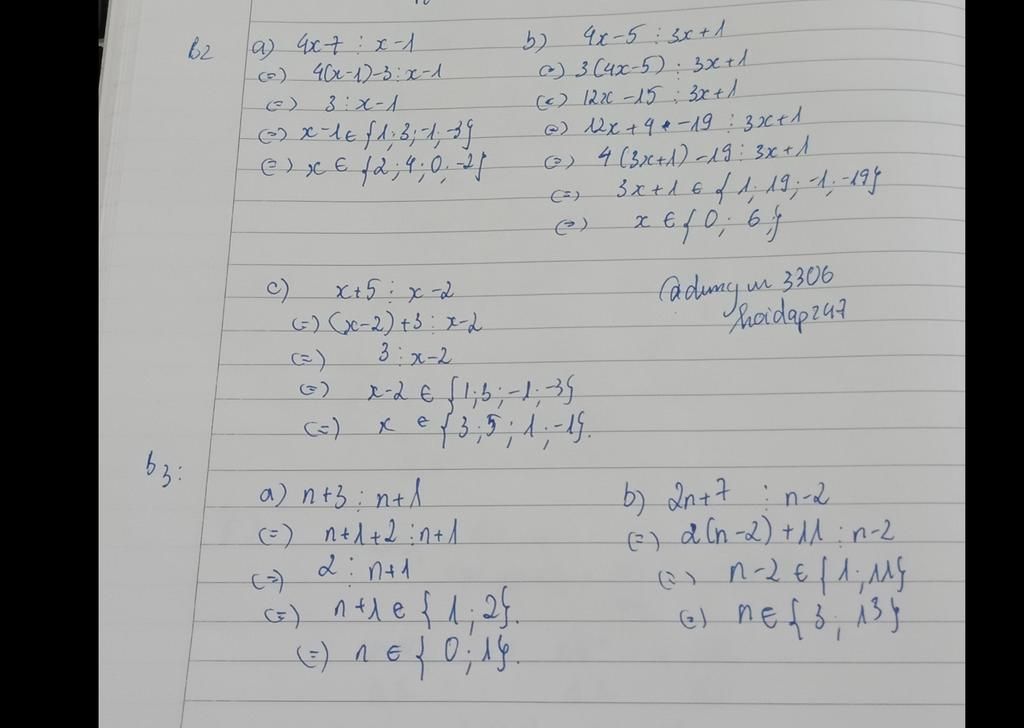 b2 a) 4x-7 ⋮ x-1
(=) 4(x-1)-3 ⋮ x-1
(=) 3 ⋮ x-1
(=) x-1 ∈ {1; 3; -1; -3}
(=) x ∈ {2; 4; 0; -2}
b) 4x-5 ⋮ 3x+1
(=) 3(4x-5) ⋮ 3x+1
(=) 12x-15 ⋮ 3x+1
(=) 12x+4 -19 ⋮ 3x+1
(=) 4(3x+1)-19 ⋮ 3x+1
(=) 3x+1 ∈ {1; 19; -1; -19}
(=) x ∈ {0; 6;}
c) x+5 ⋮ x-2
(=) (x-2)+3 ⋮ x-2
(=) 3 ⋮ x-2
(=) x-2 ∈ {1; 3; -1; -3}
(=) x ∈ {3; 5; 1; -1}.
3306
hoidap247
b3:
a) n+3 ⋮ n+1
(=) n+1+2 ⋮ n+1
(=) 2 ⋮ n+1
(=) n+1 ∈ {1; 2}.
(=) n ∈ {0; 1}.
b) 2n+7 ⋮ n-2
(=) 2(n-2)+11 ⋮ n-2
(=) n-2 ∈ {1; 11}
(=) n ∈ {3; 13}